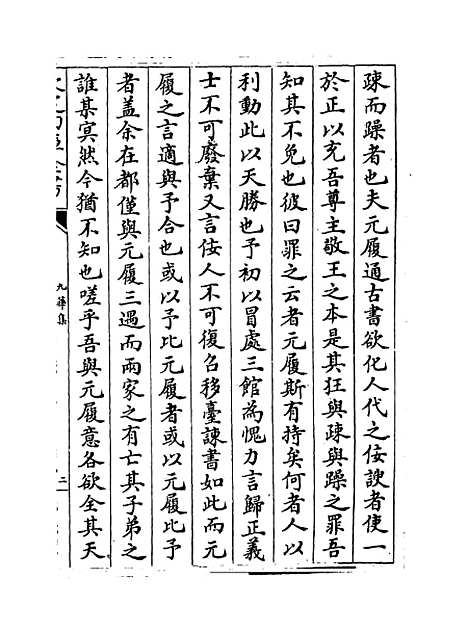 疎而躁者也夫元履通古書欲化人代之佞諛者使一
於正以充吾尊主敬王之本是其狂與疎與躁之罪吾
知其不免也彼曰罪之云者元履斯有持矣何者人以
利動此以天勝也予初以冒處三館為愧力言歸正義
士不可廢棄又言佞人不可復召移臺諫書如此而元
履之言適與予合也或以予比元履者或以元履比予
者盖余在都僅與元履三遇而兩家之有亡其子弟之
誰某㝠然今猶不知也嗟乎吾與元履意各欲全其天
九華集
二